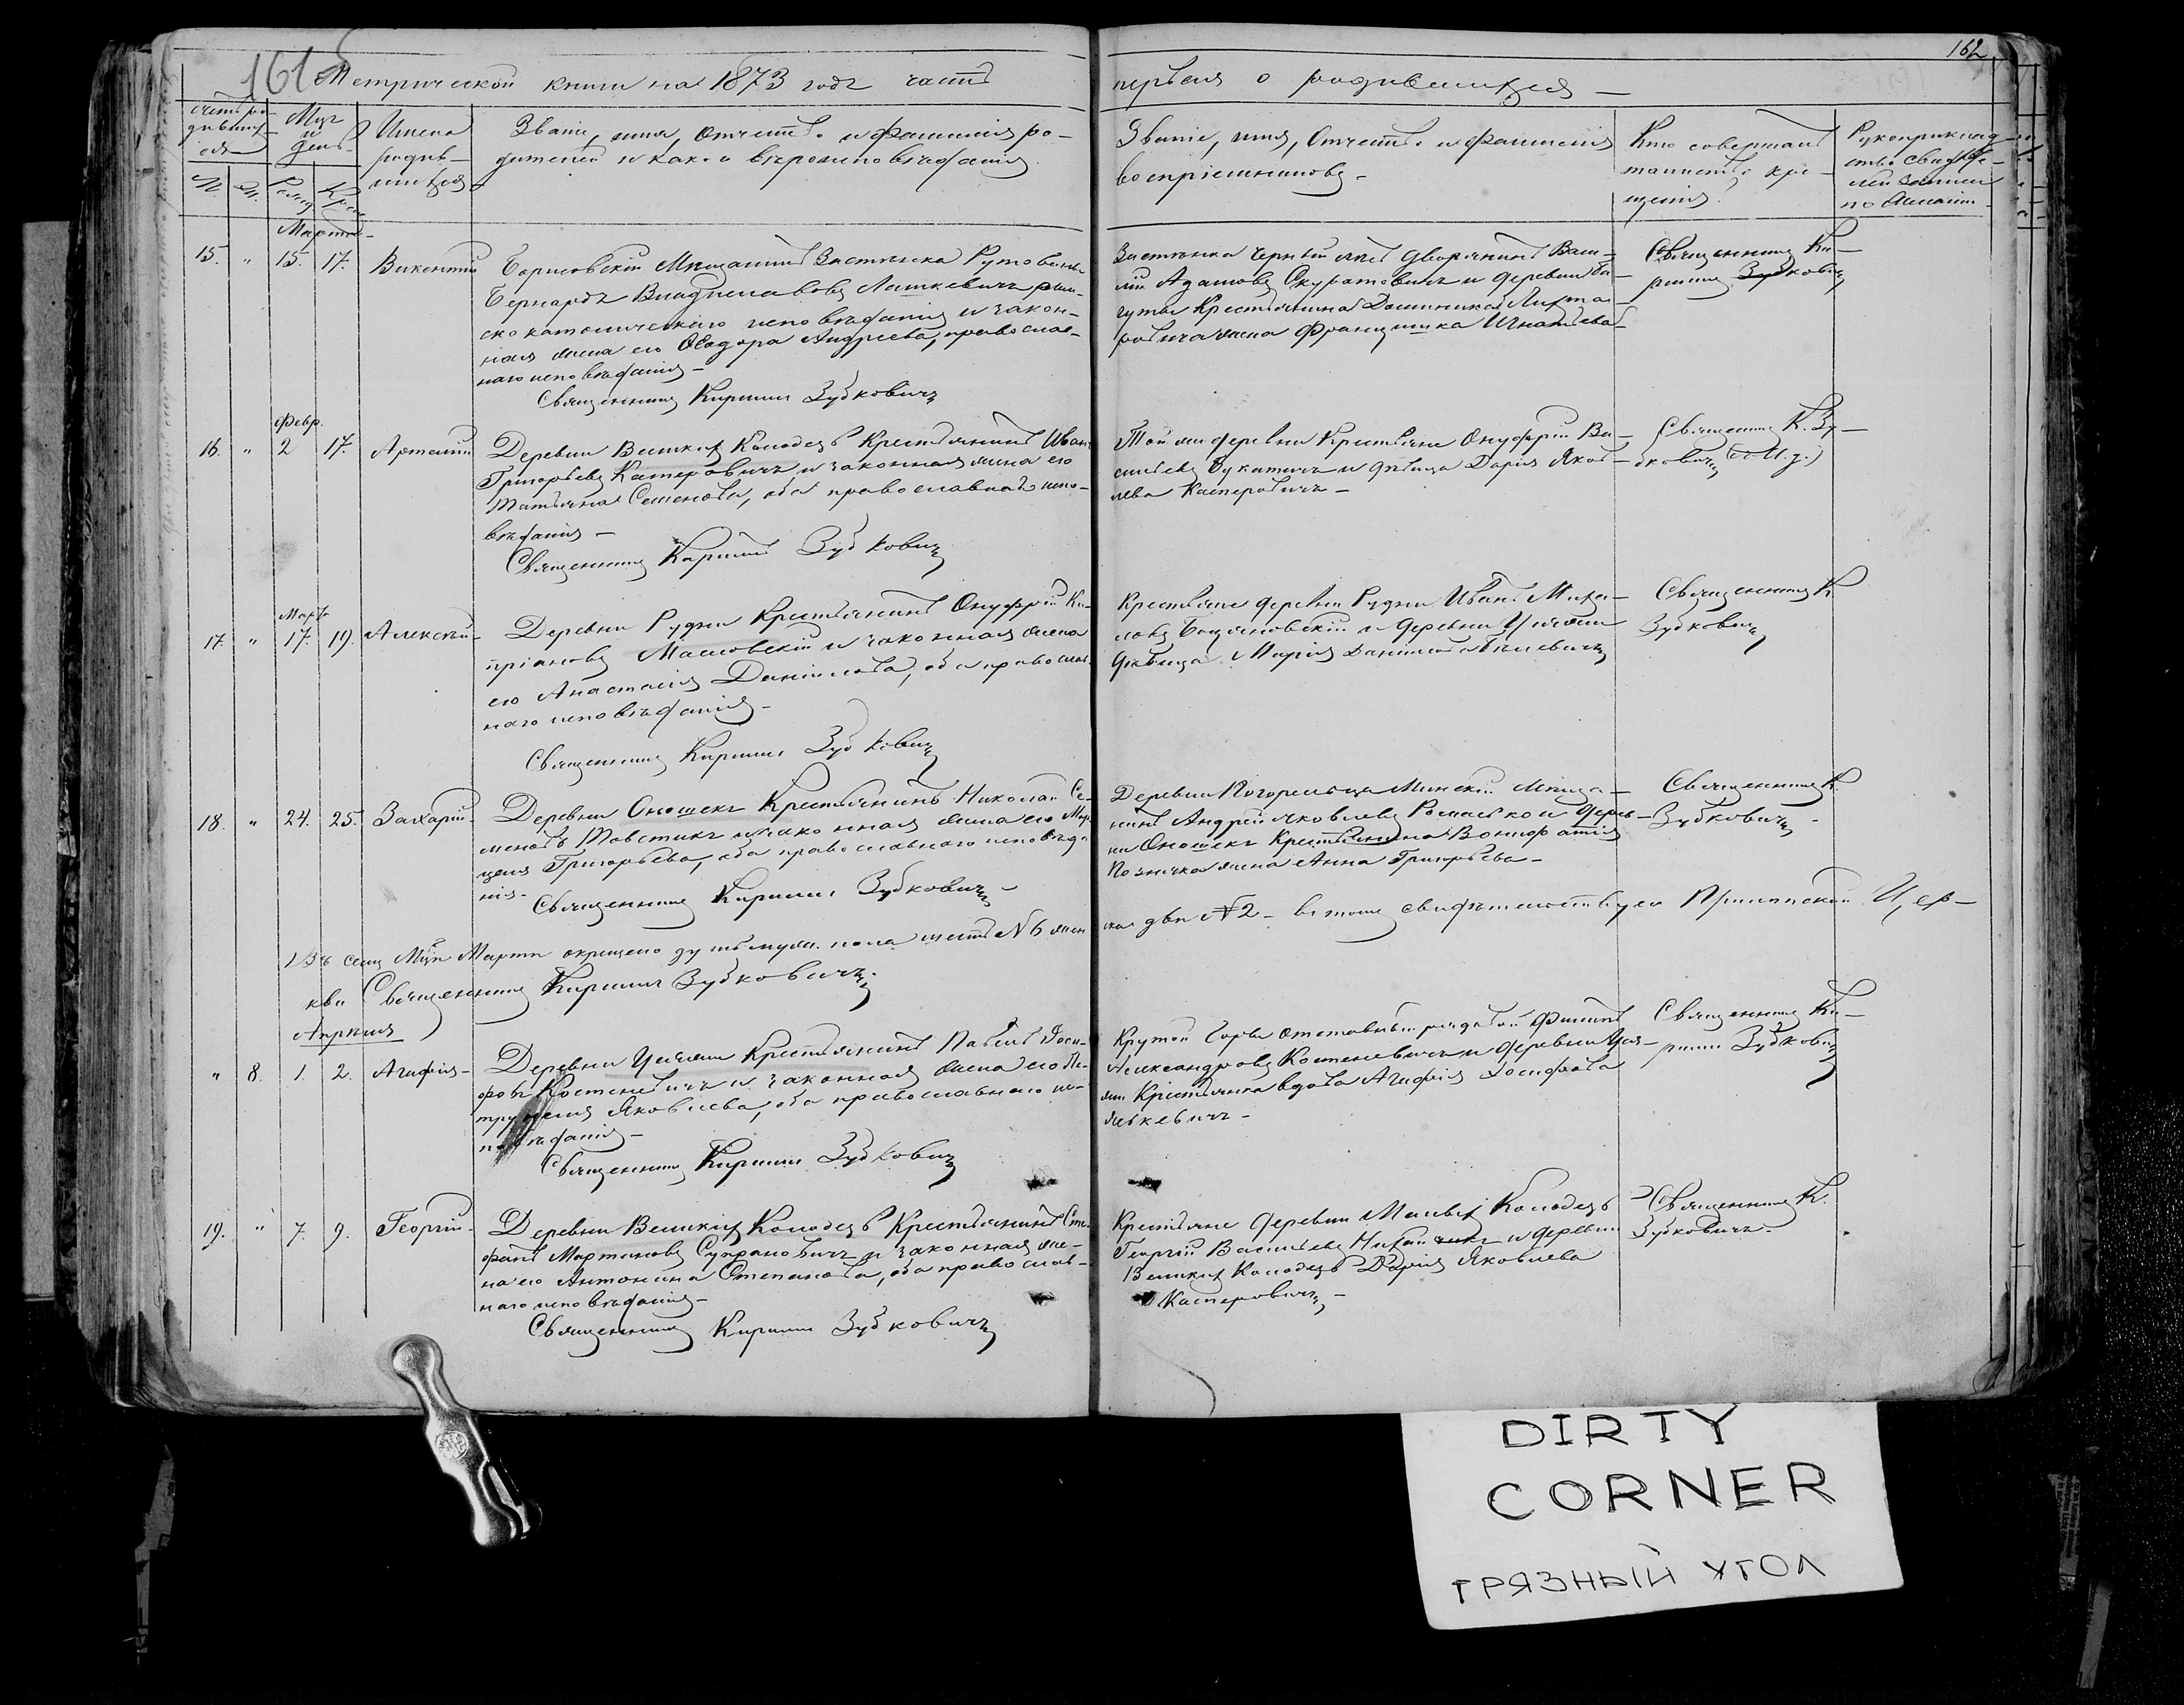 161
162
Метрической книги на 1873 годъ часть
первая о родившихся
Счетъ ро-
дившихся
Мцъ
и
день
Имена
родив-
шихся
Званіе, имя, Отчество и фамилія ро-
дителей и какого вѣроисповѣданія
М.
Ж.
Званіе, имя, Отчество и фамилія
воспріемниковъ
Кто совершалъ
таинство кре-
щенія
Рукоприклад-
ство свидѣте-
лей записи
по желанію
Марта
15. " 15. 17. Викентій
Борисовскій Мѣщанинъ Застѣнка
Бернардъ Владиславовъ Лашкевичъ рим-
ско католическаго исповѣданія и закон-
ная жена его Ѳеодора Андреева, православ-
наго исповѣданія
Священникъ Кириллъ Зубковичъ
Застѣнка дворянинъ Васи-
лій Адамовъ Скуратовичъ и деревни
крестьянина Доминика
жена Францишка Игнатьева
Священникъ Ки-
риллъ Зубковичъ
Февр.
16. " 2 17. Артемій
Деревни Великихъ Колодезь Крестьянинъ Иванъ
Григорьевъ Касперовичъ и законная жена его
Татьяна Семенова, оба православнаго испо-
вѣданія
Священникъ Кириллъ Зубковичъ
Той же деревни Крестьяне Онуфрій Ва-
сильевъ Букатичъ и дѣвица Дарія Яков-
лева Касперовичъ
Священникъ К. Зу-
бковичъ
Марта
17. " 17. 19. Алексѣй
Деревни Рудни Крестьянинъ Онуфрій Ки-
пріановъ Масловскій и законная жена
его Анастасія Даніилова, оба православ-
наго исповѣданія
Священникъ Кириллъ Зубковичъ
Крестьяне деревни Рудни Иванъ Миха-
ловъ и деревни
дѣвица Марія Даніилова
Священникъ К.
Зубковичъ
18. " 24. 25. Захарій
Деревни Оношекъ Крестьянинъ Николай Се-
меновъ Товстикъ и законная жена его Мар-
целя Григорьева, оба православнаго исповѣда-
нія
Священникъ Кириллъ Зубковичъ
Деревни Погорельца Минскій мѣща-
нинъ Андрей Яковлевъ Романько и дерев-
ни Оношекъ Крестьянина Вонифатія
Позничка жена Анна Григорьева
Священникъ К.
Зубковичъ
Въ семъ Мцѣ Мартѣ окрещено душъ муж. пола шесть № 6 жен
ска двѣ № 2 - въ томъ свидѣтельствуетъ Цер-
кви Священникъ Кириллъ Зубковичъ
Апрѣля
" 8. 1. 2. Агафія
Деревни Крестьянинъ Павелъ Іоси-
фовъ Костеневичъ и законная жена его Пе-
трунеля Яковлева, оба православнаго ис-
повѣданія
Священникъ Кириллъ Зубковичъ
Крутой Горы отставный рядовой Филипъ
Александровъ Костеневичъ и деревни
Крестьянка вдова Агафія Іосифова
Священникъ Ки-
риллъ Зубковичъ
19. " 7. 9. Георгій
Деревни Великихъ Колодезь Крестьянинъ Сте-
фанъ Мартиновъ Супрановичъ и законная же-
на его Антонина Степанова, оба православ-
наго исповѣданія
Священникъ Кириллъ Зубковичъ
Крестьяне деревни Малыхъ Колодезь
Георгій Васильевъ и деревни
Великихъ Колодезь Дарія Яковлева
Касперовичъ
Священникъ К.
Зубковичъ
DIRTY
CORNER
ГРЯЗНЫЙ УГОЛ